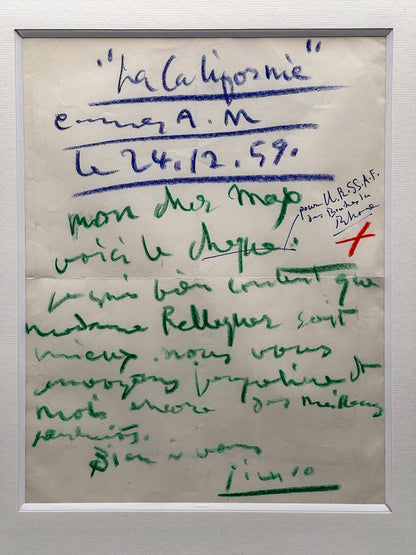 "La Californie"
Cannes A.M
le 24.12.59.
mon cher Maje
voici le cheque.
pour U.R.SS.A.F.
des Bouches du
Rhone
je suis bien content que
madame Pellequer soit
mieux. nous vous
envoyons jacqueline et
moi encore des meilleurs
souhaits.
Bien a vous
Picasso